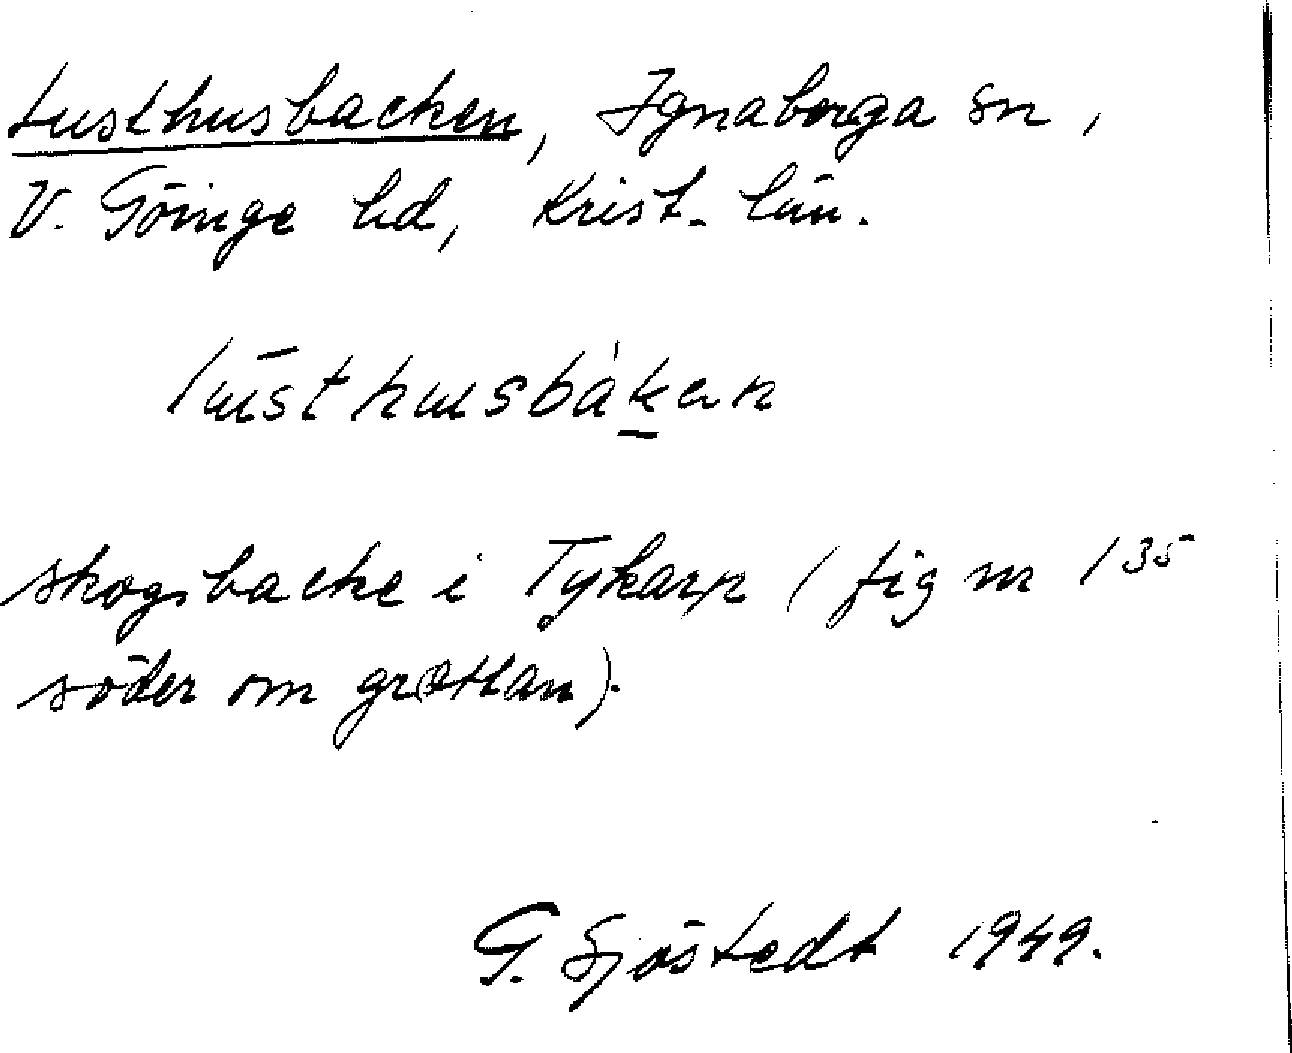 Lusthusbacken, Ignaberga sn,
V. Göinge hd, Krist. län.
lusthusbàkan
skogsbacke i Tykarp (fig nr 135
söder om grottan).
G. Sjöstedt 1949.